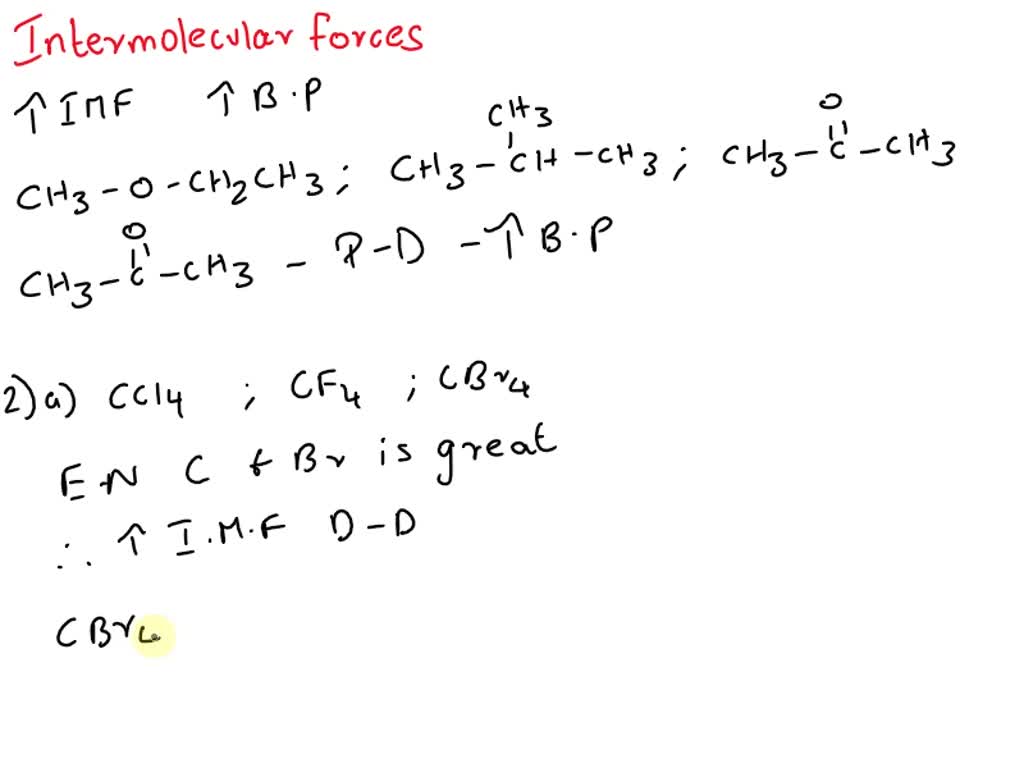 Intermolecular forces
↑ IMF ↑ B.P
CH3 - O - CH2CH3 ; CH3 - CH - CH3 ; CH3 - C - CH3
CH3
O
O
CH3 - C - CH3 - P-D - ↑ B.P
2) a) CCl4 ; CF4 ; CBr4
EN C & Br is great
∴ ↑ I.M.F D-D
CBr4